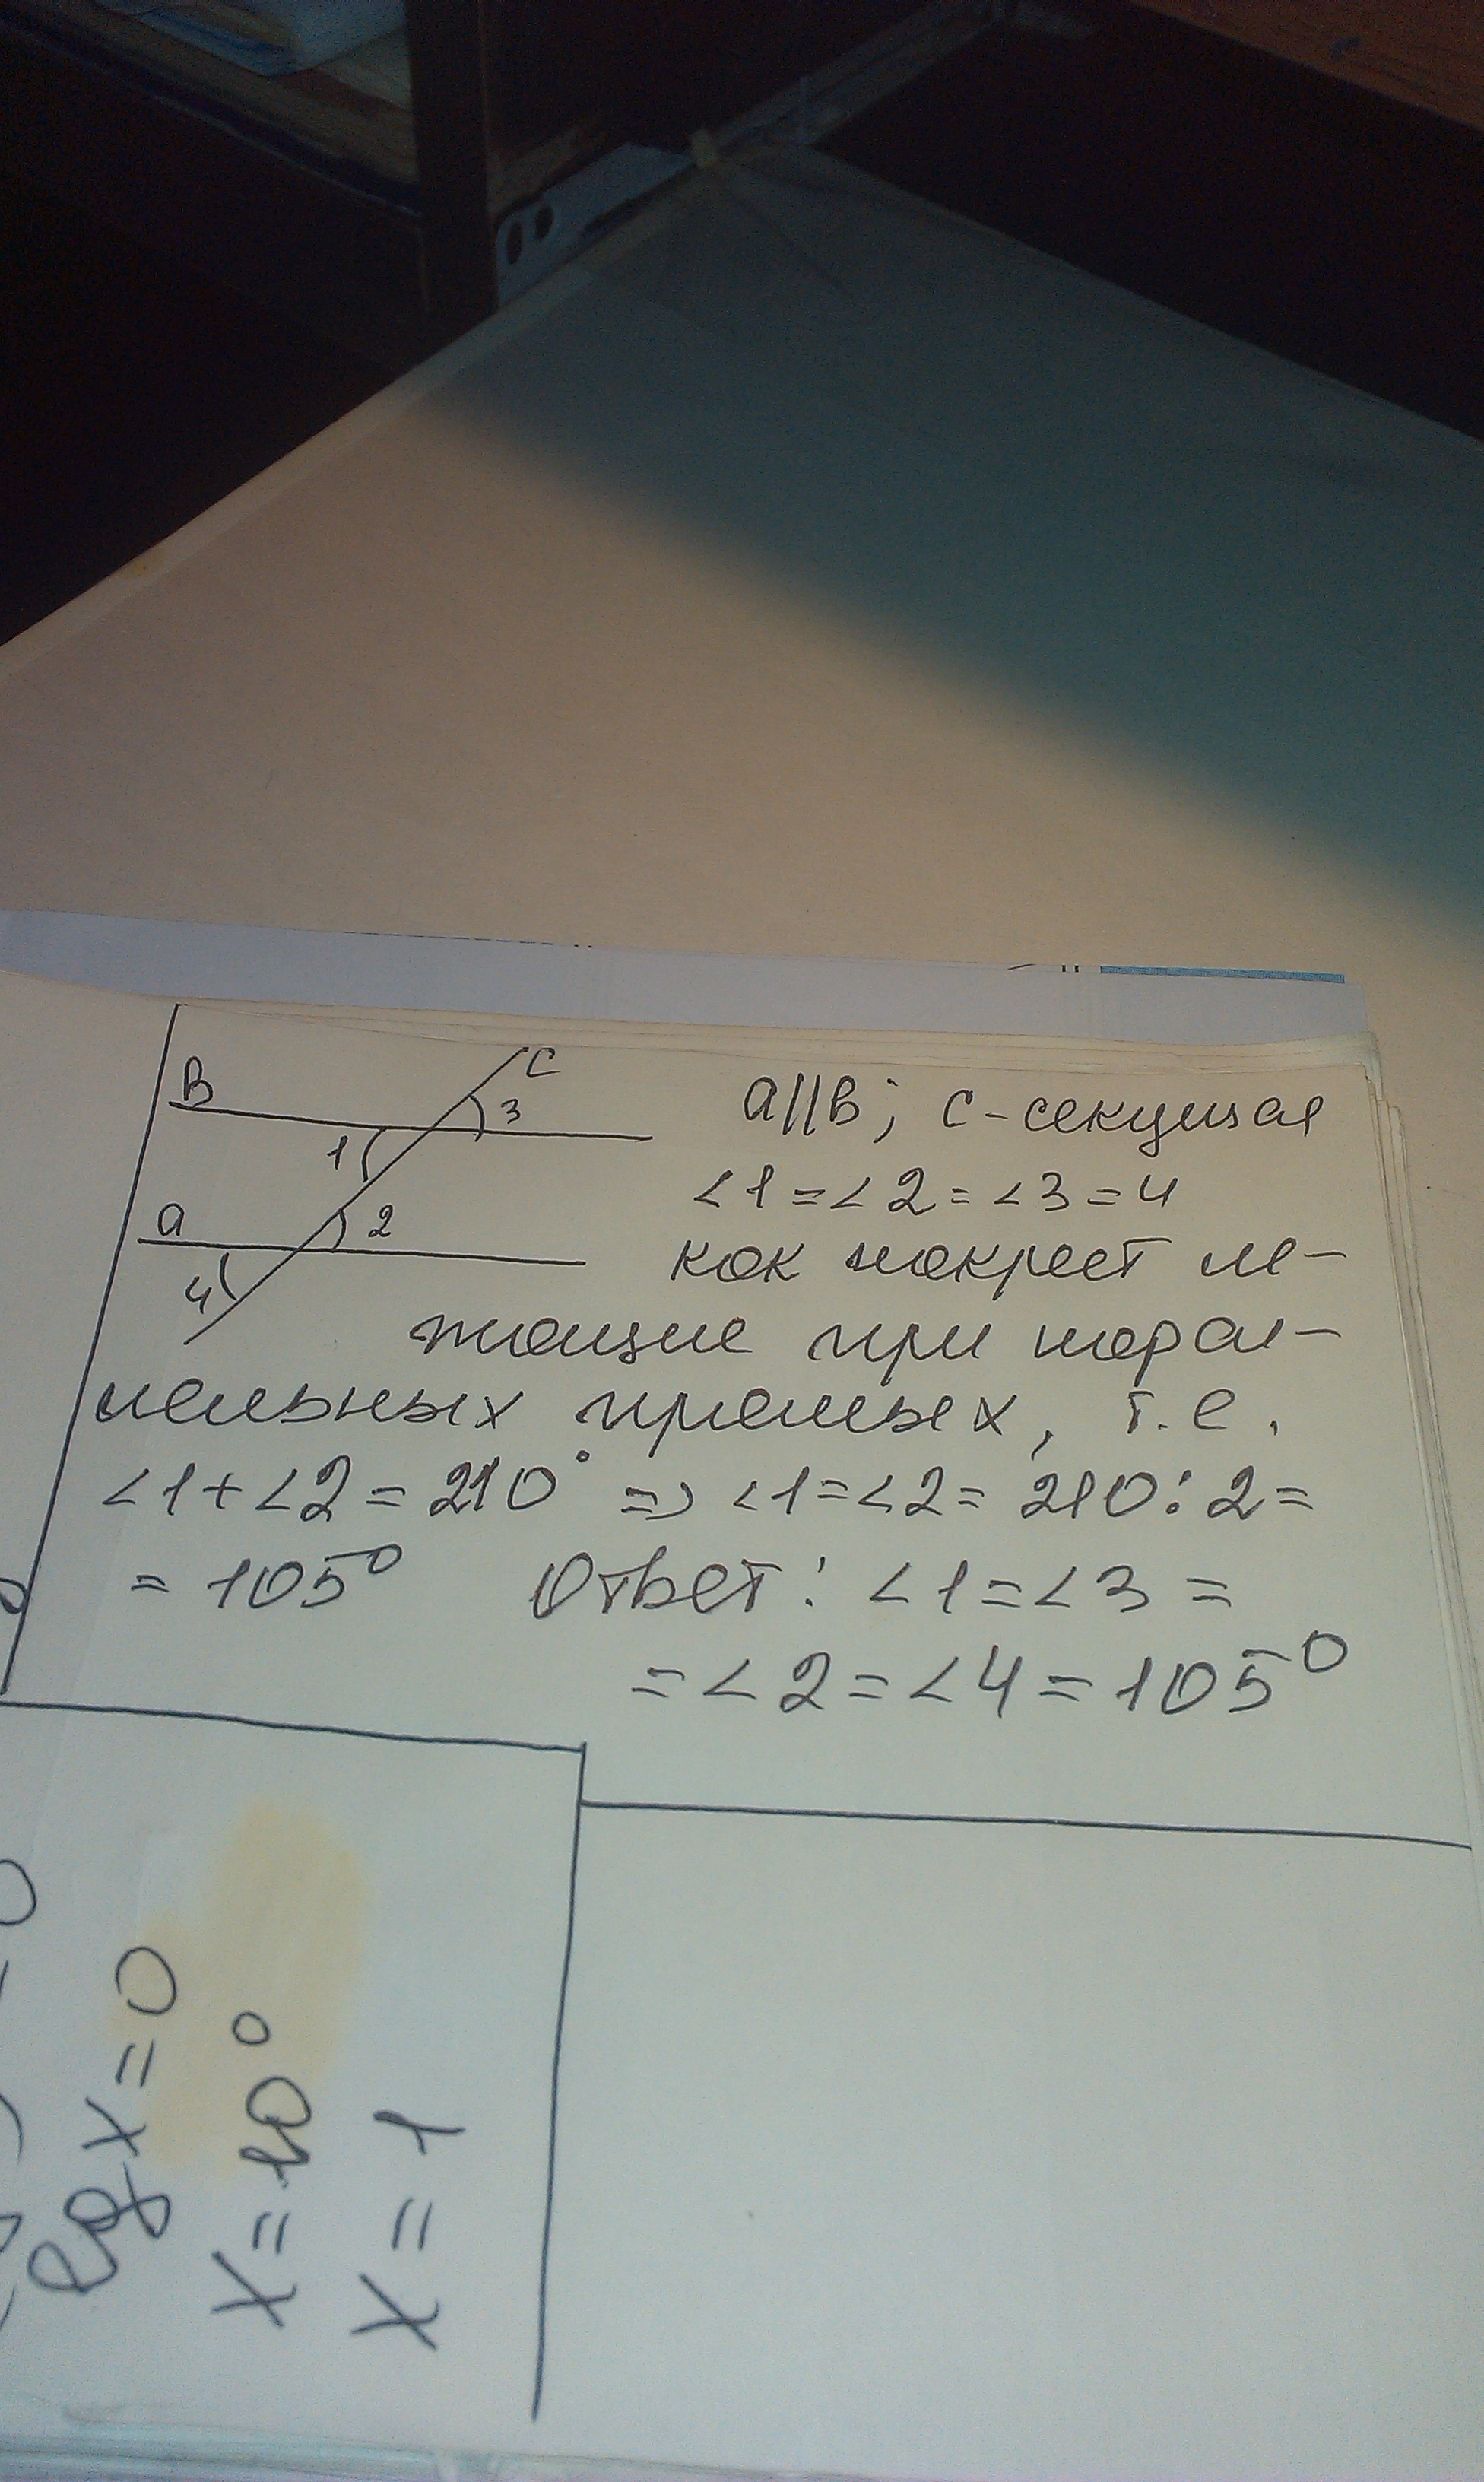 B
C
3
1
a
2
4
a||b; c-секущая
<1=<2=<3=4
как накрест ле-
жащие при парал-
лельных прямых, т.е.
<1+<2=210° => <1=<2=210:2=
=105° Ответ: <1=<3=
=<2=<4=105°
x=0
x=10°
x=1